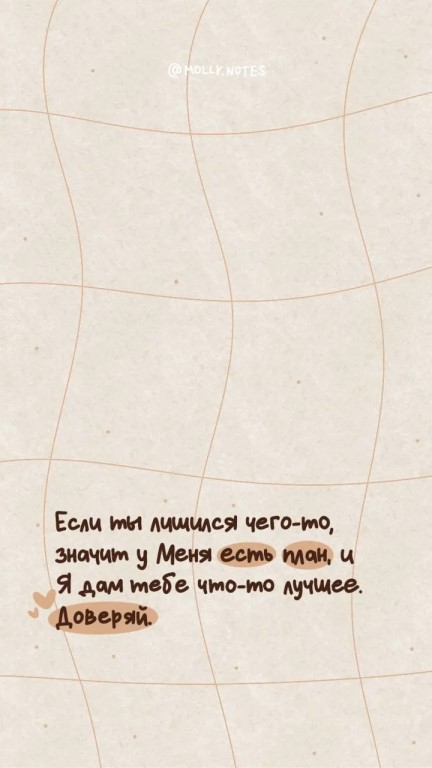 @MOLLY.NOTES
Если ты лишился чего-то,
значит у Меня есть план, и
Я дам тебе что-то лучшее.
Доверяй.